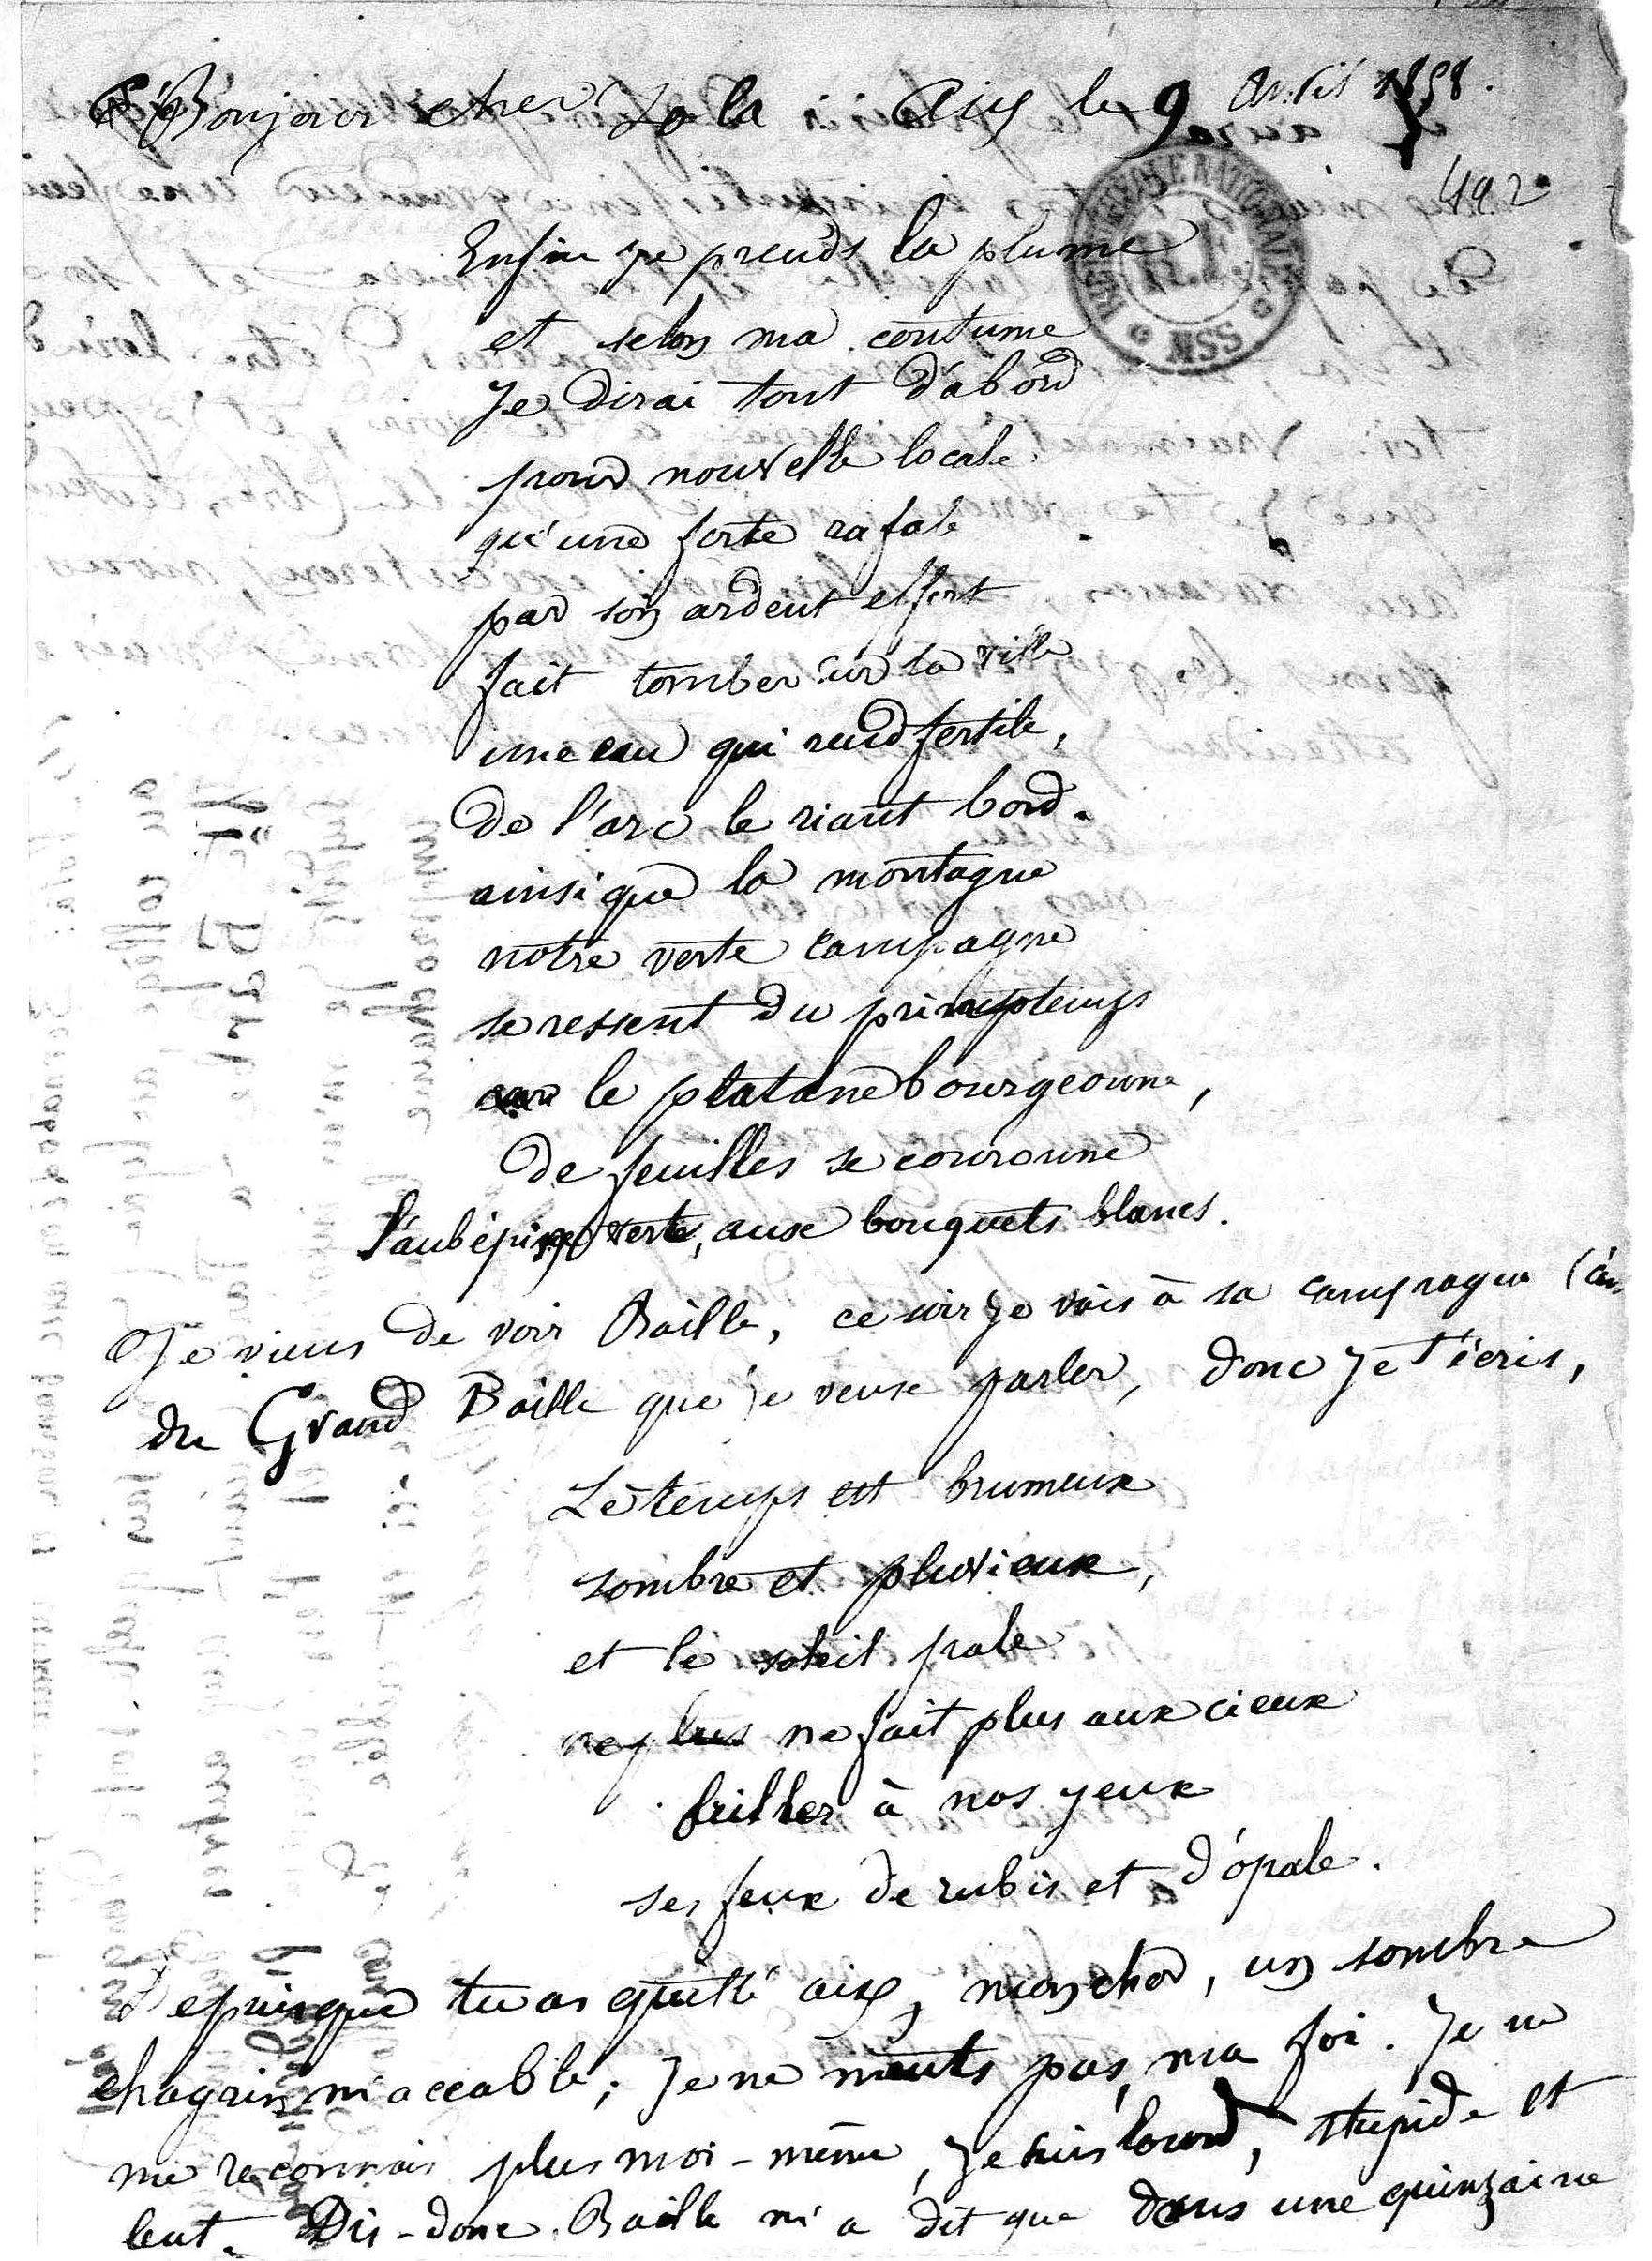 Bonjour cher Zola Aix le 9 Avril 1858.
492
BIBLIOTHÈQUE NATIONALE R.F. MSS
Enfin je prends la plume
et selon ma coutume
Je dirai tout d'abord
pour nouvelle locale
qu'une forte rafale
par son ardent effort
fait tomber sur la ville
une eau qui rend fertile,
De l'arc le riant bord.
ainsi que la montagne
notre verte campagne
se ressent du primptemps
car le platane bourgeonne,
De feuilles se couronne
l'aubépine verte, aux bouquets blancs.
Je viens de voir Baille, ce soir je vais à sa campagne (c'est
du Grand Baille que je veux parler, donc je t'écris,
Le temps est brumeux
sombre et pluvieux,
et le soleil pale
ne plus ne fait plus aux cieux
briller à nos yeux
ses feux de rubis et d'opale.
Depuis que tu as quitté aix, mon cher, un sombre
chagrin m'accable; Je ne ments pas, ma foi. Je ne
me reconnais plus moi-même, je suis lourd, stupide et
lent. Dis-donc, Baille m'a dit que dans une quinzaine